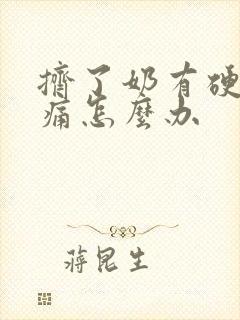 擠了奶有硬
痛怎麼办
蔣昆生